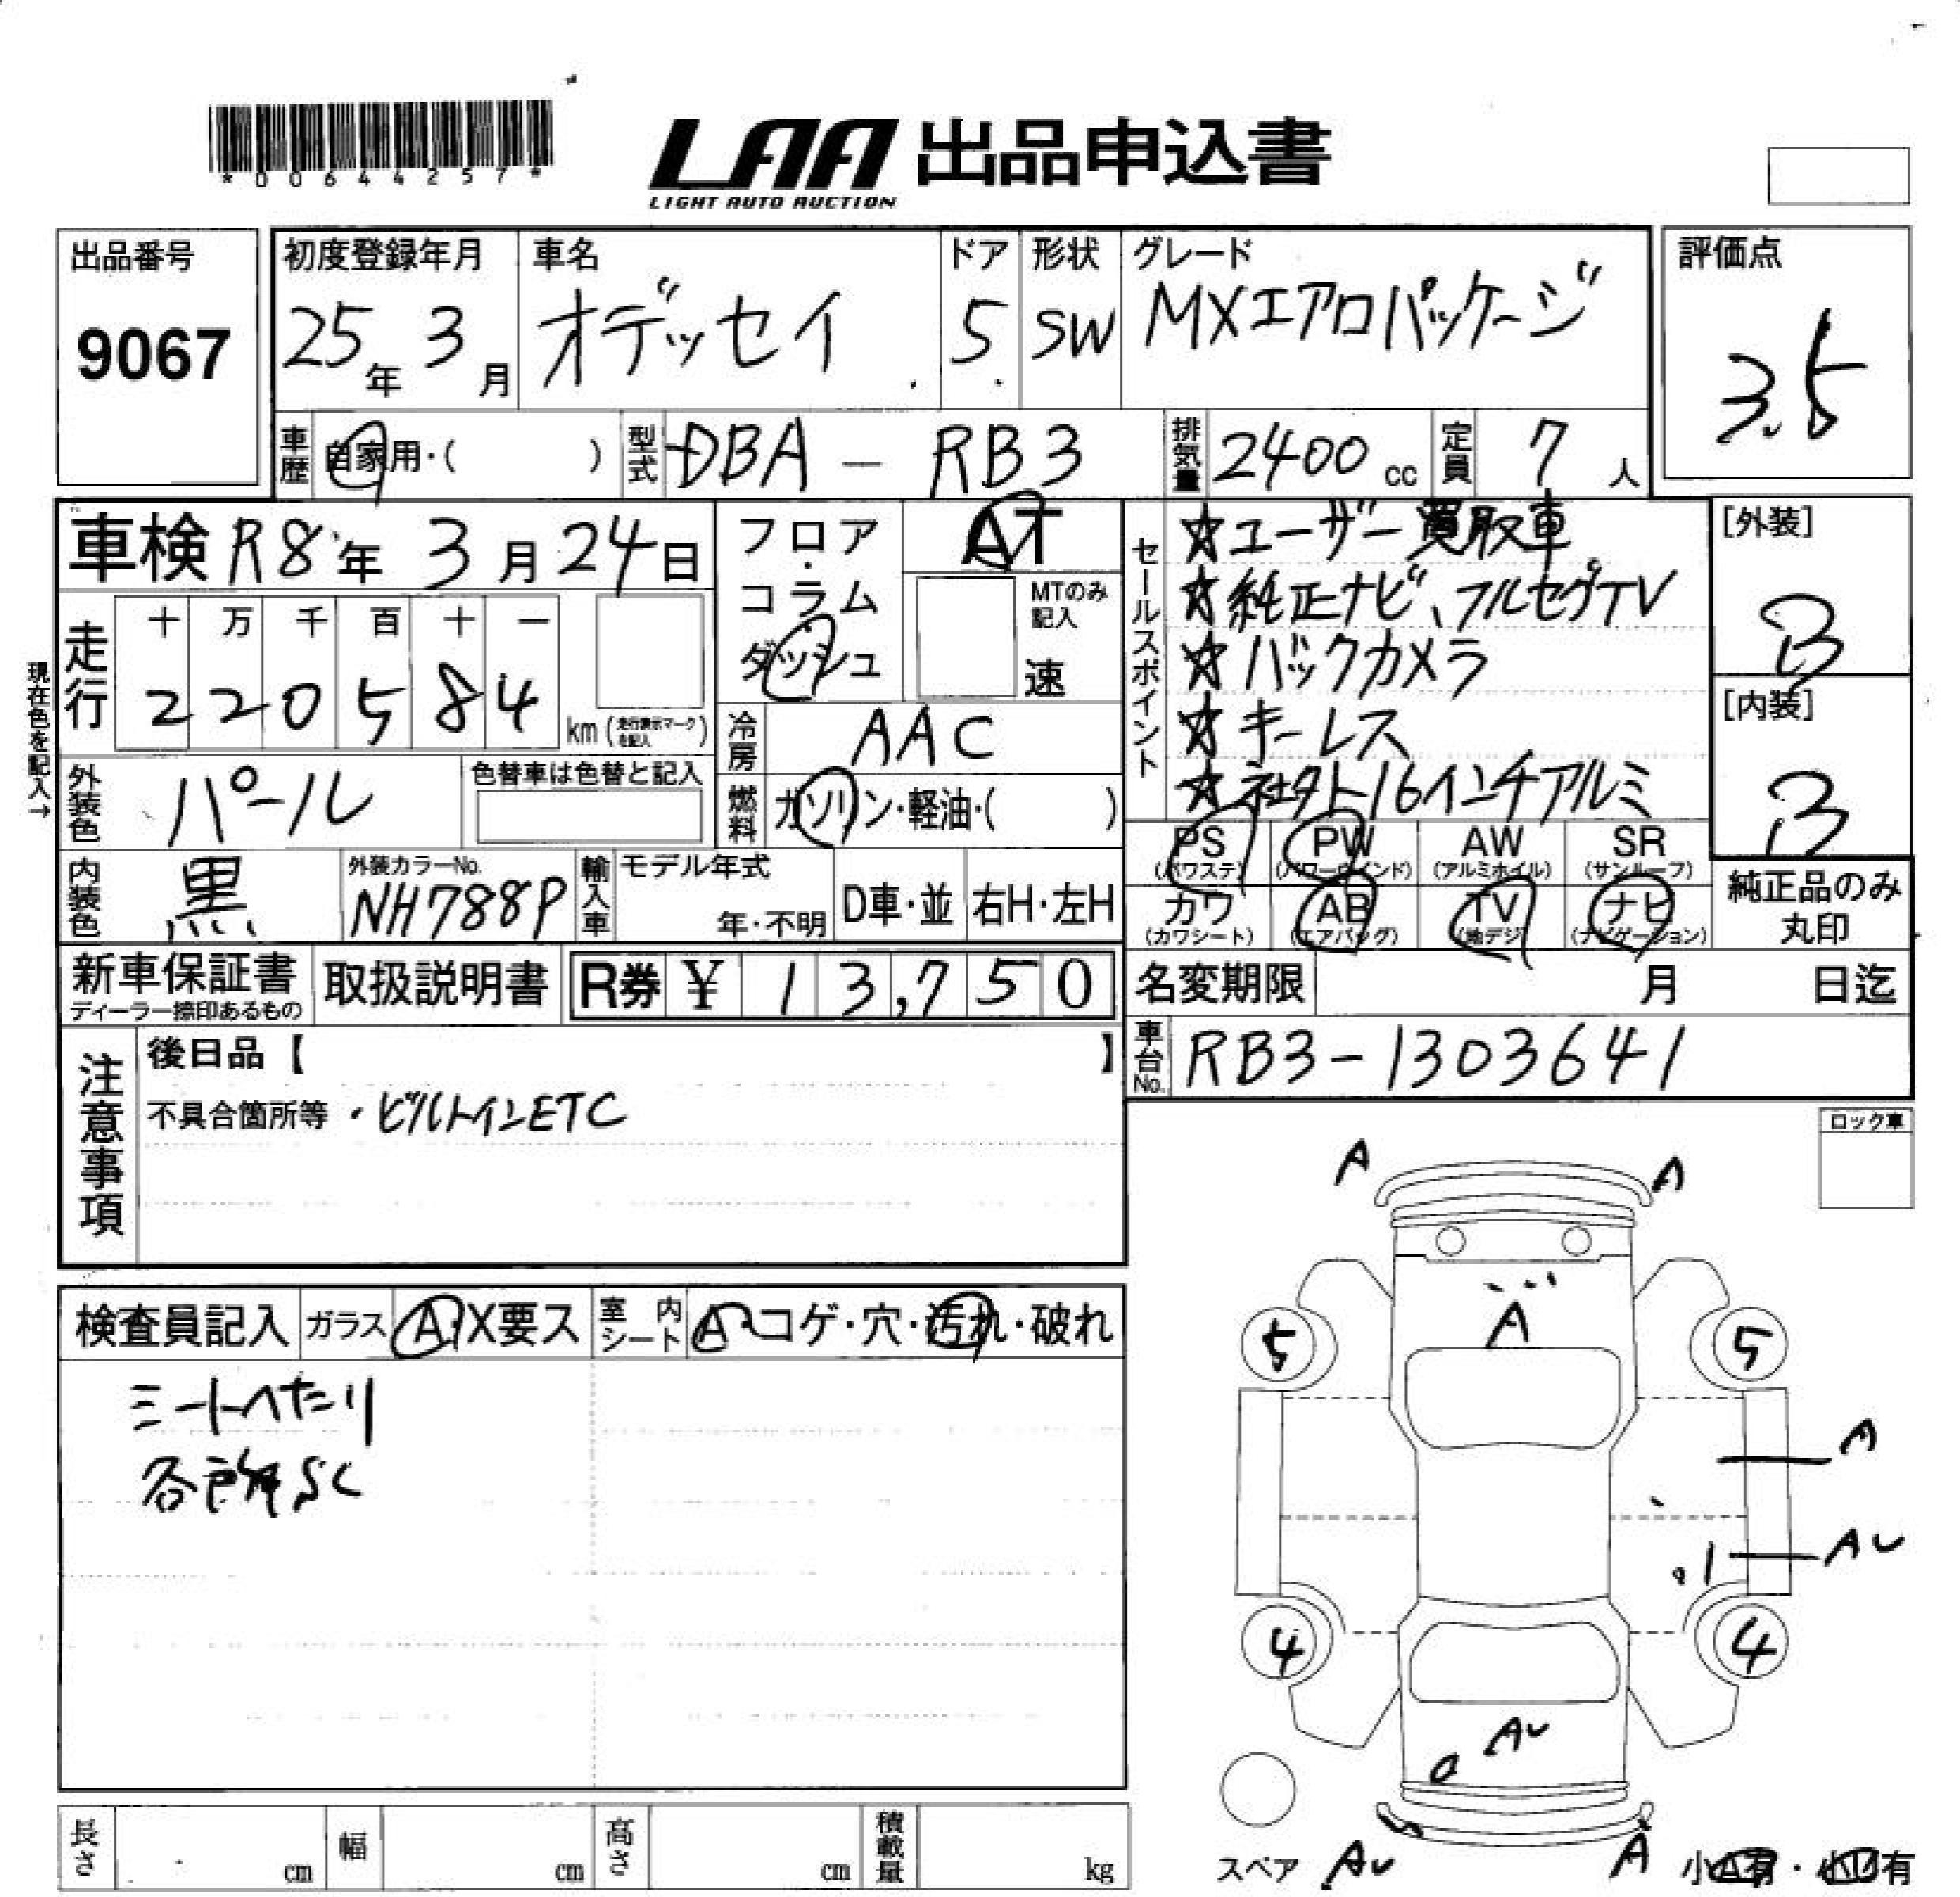 *00644257*
LAA 出品申込書
LIGHT AUTO AUCTION
出品番号
9067
初度登録年月
25年 3月
車名
オデッセイ
ドア
5
形状
SW
グレード
MXエアロパッケージ
評価点
3.5
車歴 自家用・( )
型式 DBA - RB3
排気量 2400 cc
定員 7 人
車検 R8年 3月 24日
フロア・コラム・ダッシュ
AT
MTのみ記入
速
セールスポイント
☆ユーザー買取車
☆純正ナビ、フルセグTV
☆バックカメラ
☆キーレス
☆社外16インチアルミ
[外装]
B
[内装]
B
現在色を記入→
走行
十 万 千 百 十 一
2 2 0 5 8 4
km (走行表示マークを記入)
冷房 AAC
外装色 パール
色替車は色替と記入
燃料 ガソリン・軽油・( )
PS (パワステ)
PW (パワーウインド)
AW (アルミホイル)
SR (サンルーフ)
カワ (カワシート)
AB (エアバッグ)
TV (地デジ)
ナビ (ナビゲーション)
純正品のみ丸印
内装色 黒
外装カラーNo.
NH788P
輸入車
モデル年式
年・不明
D車・並
右H・左H
新車保証書
ディーラー捺印あるもの
取扱説明書
R券 ¥ 1 3,7 5 0
名変期限 月 日迄
車台No. RB3-1303641
注意事項
後日品【 】
不具合箇所等 ・ビルトインETC
ロック車
検査員記入
ガラス A・X要ス
室内シート A・コゲ・穴・汚れ・破れ
シートへたり
各所SC
A A
A
5 5
A
AU
4 4
AU
スペア AU
A
小A有・小U有
長さ cm
幅 cm
高さ cm
積載量 kg